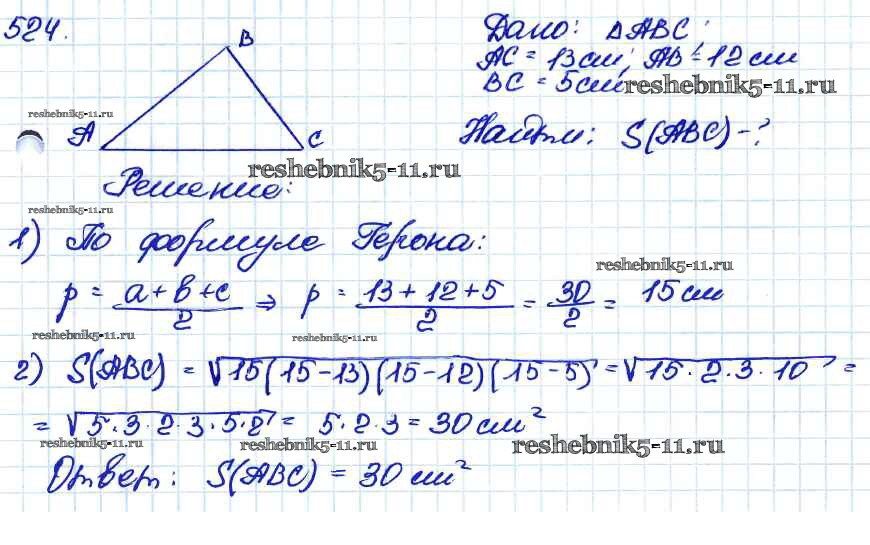 524.
B
Дано: △ABC;
AC = 13 см; AB = 12 см
BC = 5см
reshebnik5-11.ru
reshebnik5-11.ru
A
C
Найти: S(ABC) - ?
reshebnik5-11.ru
Решение:
reshebnik5-11.ru
1) По формуле Герона:
reshebnik5-11.ru
p = a + b + c / 2 ⇒ p = 13 + 12 + 5 / 2 = 30 / 2 = 15 см
reshebnik5-11.ru
reshebnik5-11.ru
2) S(ABC) = √15(15-13)(15-12)(15-5) = √15·2·3·10 =
= √5·3·2·3·5·2 = 5·2·3 = 30 см²
reshebnik5-11.ru
reshebnik5-11.ru
reshebnik5-11.ru
Ответ: S(ABC) = 30 см²